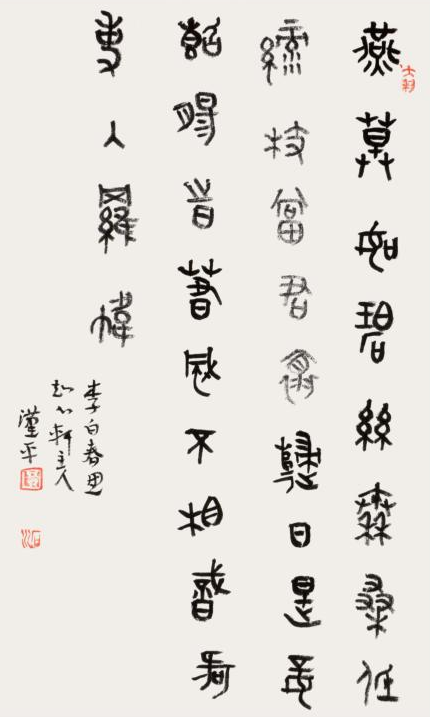 燕草如碧絲秦桑低
綠枝當君懷歸日是妾
斷腸時春風不相識何
事入羅幃
李白春思
軒主人
漢平